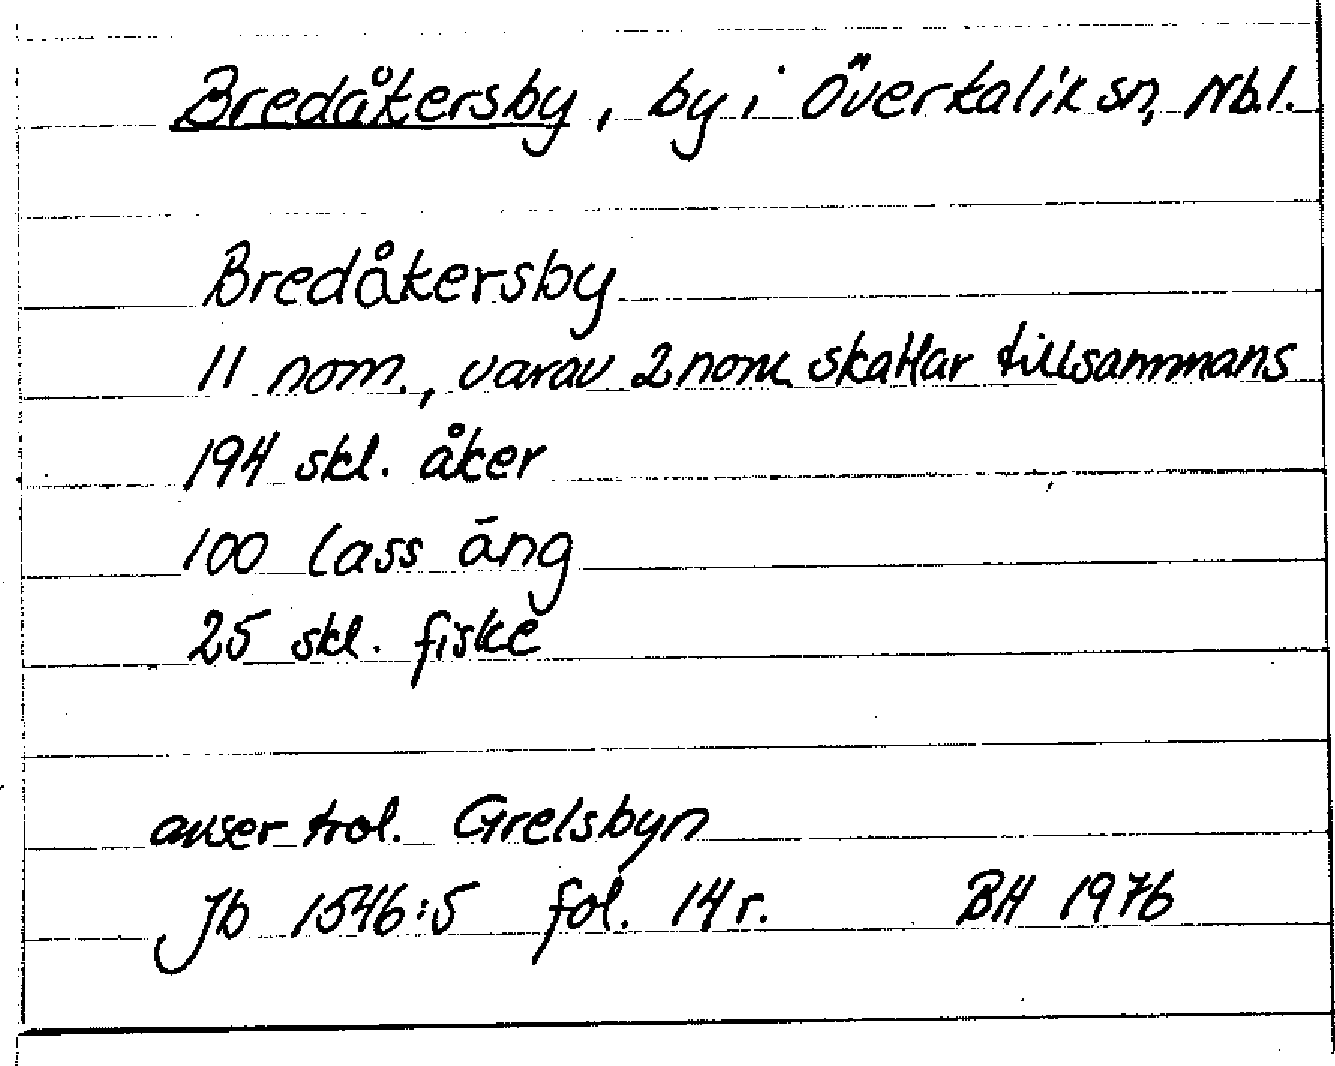 Bredåkersby, by i Överkalix sn, Nb.l.
Bredåkersby
11 nom., varav 2 nom. skattar tillsammans
194 skl. åker
100 lass äng
25 skl. fiske
avser trol. Grelsbyn
Jb 1546:5 fol. 14 r. BH 1976